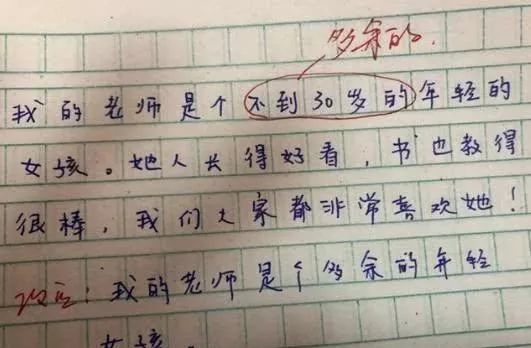 多余的.
我的老师是个不到30岁的年轻的
女孩。她人长得好看，书也教得
很棒，我们大家都非常喜欢她！
改正：我的老师是个多余的年轻
女孩。